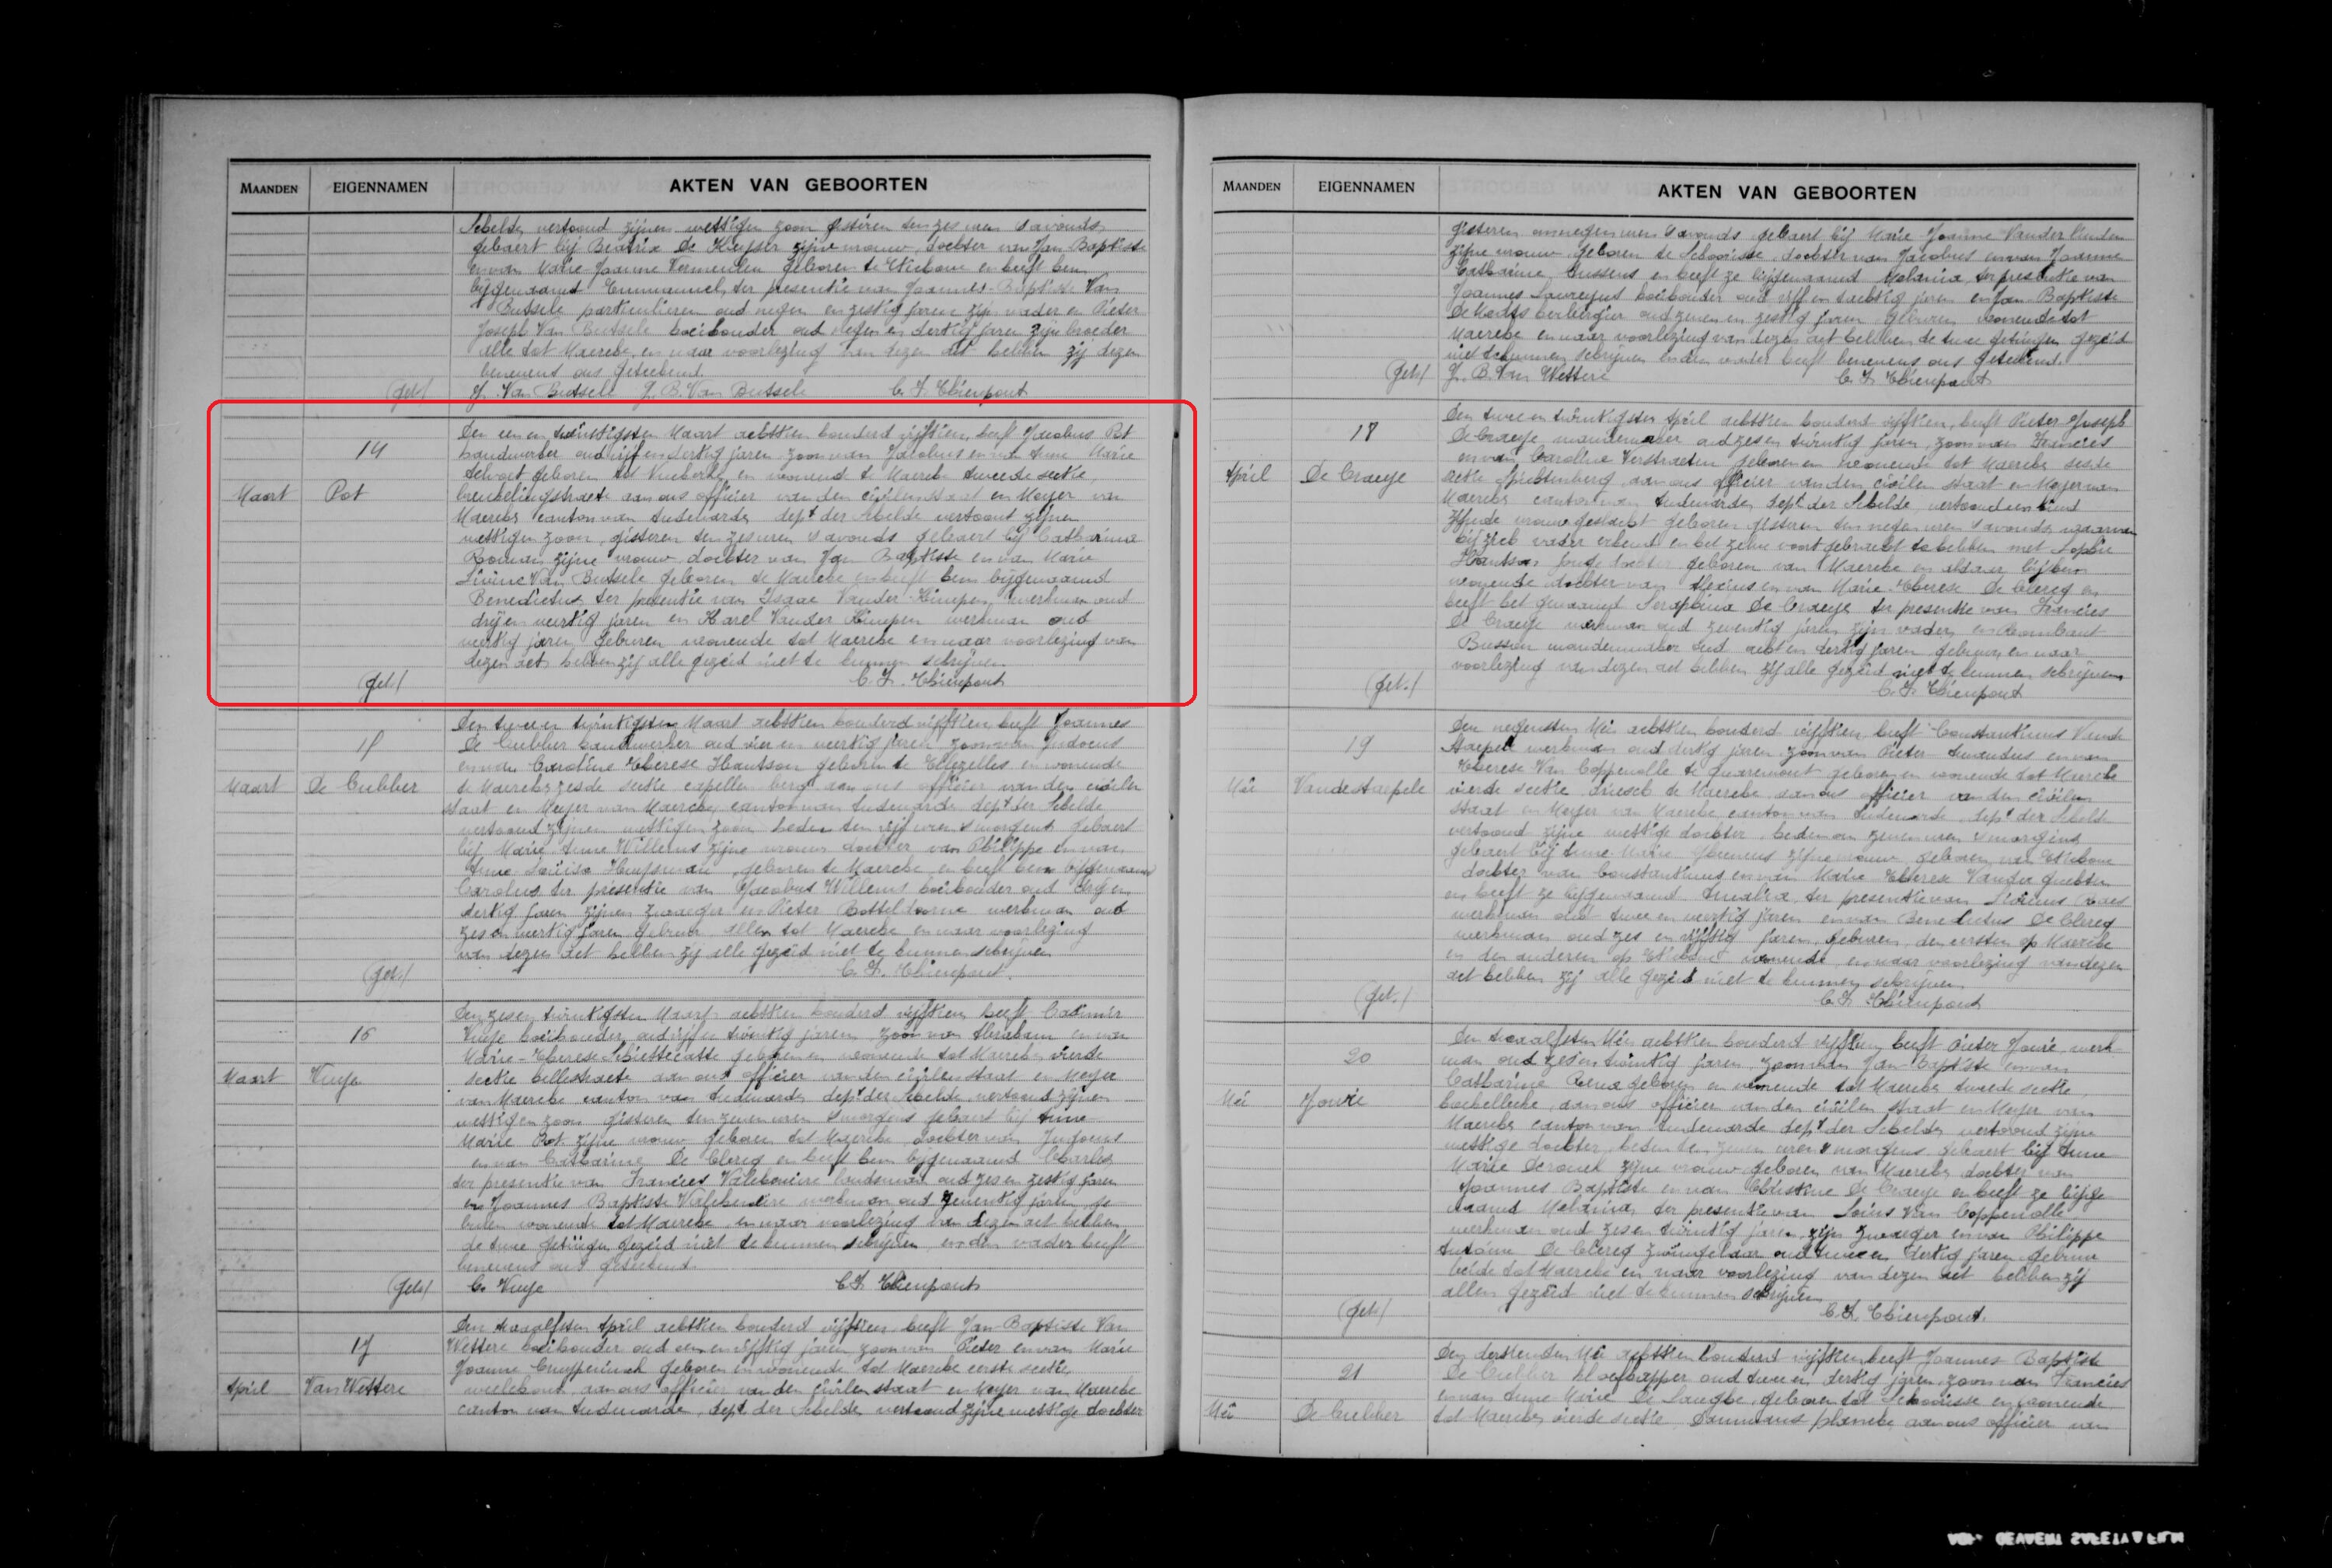 MAANDEN EIGENNAMEN AKTEN VAN GEBOORTEN
Schelde, vertoond zijnen wettigen zoon gisteren ten zes uren s'avonds
gebaert bij Beatrix De Keyser zijne vrouw, dochter van Jan Baptiste
en van Marie Joanne Vermeulen geboren te Etichove en heeft hem
bijgenaamd Emmanuel, ter presentie van Joannes-Baptiste Van
Butsele partikulieren oud negen en zestig jaren zijn vader en Pieter
Joseph Van Butsele boeihouder oud negen en dertig jaren zijn broeder
alle tot Maercke, en naar voorlezing van dezen act hebben zij dezen
benevens ons geteekend.
(Get.) J. Van Butsele J. B. Van Butsele C. F. Thienpont
Den een en twintigsten Maart achttien honderd vijftien, heeft Jacobus Pot
14 handwerker oud vijf en dertig jaren zoon van Jacobus en van Anne Marie
geboren tot Nukerke en wonende te Maercke tweede sectie,
Maart Pot aan ons officier van den civilen staat en Meyer van
Maercke canton van Audenarde, dept der Schelde vertoont zijnen
wettigen zoon, gisteren ten zes uren s'avonds gebaert bij Catharina
Roman zijne vrouw, dochter van Jan Baptiste en van Marie
Livine Van Butsele geboren te Maercke en heeft hem bijgenaamd
Benedictus ter presentie van Isaac Vander Kimpen, werkman oud
drij en veertig jaren en Karel Vander Kimpen werkman oud
veertig jaren, geburen, wonende tot Maercke en naar voorlezing van
dezen act, hebben zij alle gezeid niet te kunnen schrijven.
(Get.) C. F. Thienpont
Den twee en twintigsten Maart achttien honderd vijftien, heeft Joannes
15 De Cubber handwerker oud vier en veertig jaren zoon van Judocus
en van Caroline Therese Hantson geboren te Elzeelles, en wonende
Maart De Cubber te Maercke zesde sectie capellen berg aan ons officier van den civilen
staat en Meyer van Maercke, canton van Audenarde, dept der Schelde
vertoond zijnen wettigen zoon heden ten vijf uren s'morgens gebaert
bij Marie Anne Willems zijne vrouw dochter van Philippe en van
Anne Huysman, geboren te Maercke en heeft hem bijgenaamd
Carolus ter presentie van Jacobus Willems boeihouder oud drij en
dertig jaren zijnen zwaeger en Pieter Botteldoorne werkman oud
zes en veertig jaren gebuur, allen tot Maercke en naar voorlezing
van dezen act hebben zij alle gezeid niet te kunnen schrijven
(Get.) C. F. Thienpont.
Den zes en twintigsten Maart achttien honderd vijftien, heeft Casimir
16 Vuye boeihouder, oud vijf en twintig jaren zoon van Abraham en van
Marie-Therese geboren en wonende tot Maercke vierde
Maart Vuye sectie aan ons officier van den civilen staat en Meyer
van Maercke canton van Audenarde, dept der Schelde, vertoond zijnen
wettigen zoon gisteren ten zeven uren s'morgens gebaert bij Anne
Marie Pot zijne vrouw geboren tot Maercke, dochter van Judocus
en van Catharine De Clercq en heeft hem bijgenaamd Charles,
ter presentie van Francies landsman oud zes en zestig jaren
en Joannes Baptiste werkman oud zeventig jaren, ge-
buren wonende tot Maercke, en naar voorlezing van dezen act hebben
de twee getuigen gezeid niet te kunnen schrijven, en den vader heeft
benevens ons geteekend.
(Get.) C. Vuye C. F. Thienpont
Den twaalfsten April achttien honderd vijftien, heeft Jan-Baptiste Van
17 Wettere boeihouder oud een en vijftig jaren zoon van Pieter en van Marie
Joanne geboren en wonende tot Maercke eerste sectie,
April Van Wettere aan ons officier van den civilen staat en Meyer van Maercke
canton van Audenarde, dept der Schelde, vertoond zijne wettige dochter
MAANDEN EIGENNAMEN AKTEN VAN GEBOORTEN
gisteren om negen uren s'avonds, gebaert bij Marie Joanne Vander Linden
zijne vrouw, geboren te Schoorisse, dochter van Jacobus en van Joanne
Catharine Gussens en heeft ze bijgenaamd Melania, ter presentie van
Joannes boeihouder oud vijf en tachtig jaren en Jan-Baptiste
herbergier oud zeven en zestig jaren, geburen, wonende tot
Maercke en naar voorlezing van dezen act hebben de twee getuigen gezeid
niet te kunnen schrijven en den vader heeft benevens ons geteekend.
(Get.) J. B. Van Wettere C. F. Thienpont
Den twee en twintigsten April achttien honderd vijftien, heeft Pieter Joseph
18 De Craeye mandemaker oud zes en twintig jaren, zoon van Francies
en van Caroline Verstraeten geboren en wonende tot Maercke sesde
April De Craeye sectie aan ons officier van den civilen staat en Meyer van
Maercke canton van Audenarde, dept der Schelde, vertoond een kind
zijnde vrouwgeslacht geboren gisteren ten negen uren s'avonds, waarvan
hij zich vader erkend en het zelve voort gebracht te hebben met Sophie
Hantson, jonge dochter, geboren van Maercke en aldaar bij hem
wonende dochter van Alexius en van Marie-Therese De Clercq en
heeft het genaamd Seraphina De Craeye ter presentie van Francies
De Craeye werkman oud zeventig jaren zijn vader, en Rombaut
Busson mandemaker oud acht en dertig jaren gebuur, en naar
voorlezing van dezen act hebben zij alle gezeid niet te kunnen schrijven
(Get.) C. F. Thienpont
Den negensten Mei achttien honderd vijftien, heeft Constantinus Vande
19 Staepele werkman oud dertig jaren zoon van Pieter Amandus en van
Therese Van Coppenolle te Quaremont geboren en wonende tot Maercke
Mei Vandestaepele vierde sectie, driesch te Maercke, aan ons officier van den civilen
staat en Meyer van Maercke canton van Audenarde, dept der Schelde
vertoond zijne wettige dochter, heden om zeven uren s'morgens,
gebaert bij Anne-Marie zijne vrouw, geboren van Etichove
dochter van Constantinus en van Marie Therese Vander Guchten
en heeft ze bijgenaamd Amalia, ter presentie van Livinus Raes
werkman oud twee en veertig jaren en van Benedictus De Clercq
werkman oud zes en vijftig jaren, geburen, den eersten op Maercke
en den anderen op Etichove wonende en naar voorlezing van dezen
act hebben zij alle gezeid niet te kunnen schrijven
(Get.) C. F. Thienpont
Den twaalfsten Mei achttien honderd vijftien, heeft Pieter Jouvie, werk-
20 man oud zes en twintig jaren zoon van Jan-Baptiste en van
Catharine geboren en wonende tot Maercke tweede sectie,
Mei Jouvie aan ons officier van den civilen staat en Meyer van
Maercke canton van Audenarde dept der Schelde, vertoond zijne
wettige dochter, heden ten zeven uren s'morgens gebaert bij Anne
Marie zijne vrouw geboren van Maercke, dochter van
Joannes Baptiste en van Christine De Craeye en heeft ze bijge-
naamd Melania, ter presentie van Louis Van Coppenolle
werkman oud zes en twintig jaren, zijn zwaeger en van Philippe
Antoine De Clercq zwingelaar oud twee en dertig jaren gebuur
beide tot Maercke en naar voorlezing van dezen act hebben zij
allen gezeid niet te kunnen schrijven
(Get.) C. F. Thienpont.
Den derthienden Mei achttien honderd vijftien heeft Joannes-Baptiste
21 De Cubber oud twee en dertig jaren, zoon van Francies
en van Anne Marie De Langhe, geboren tot Schoorisse en wonende
Mei De Cubber tot Maercke, vierde sectie, aan ons officier van